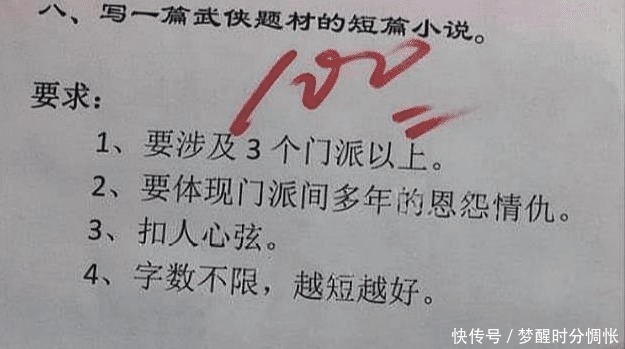 八、写一篇武侠题材的短篇小说。
100
要求：
1、要涉及 3 个门派以上。
2、要体现门派间多年的恩怨情仇。
3、扣人心弦。
4、字数不限，越短越好。
快传号 / 梦醒时分惆怅